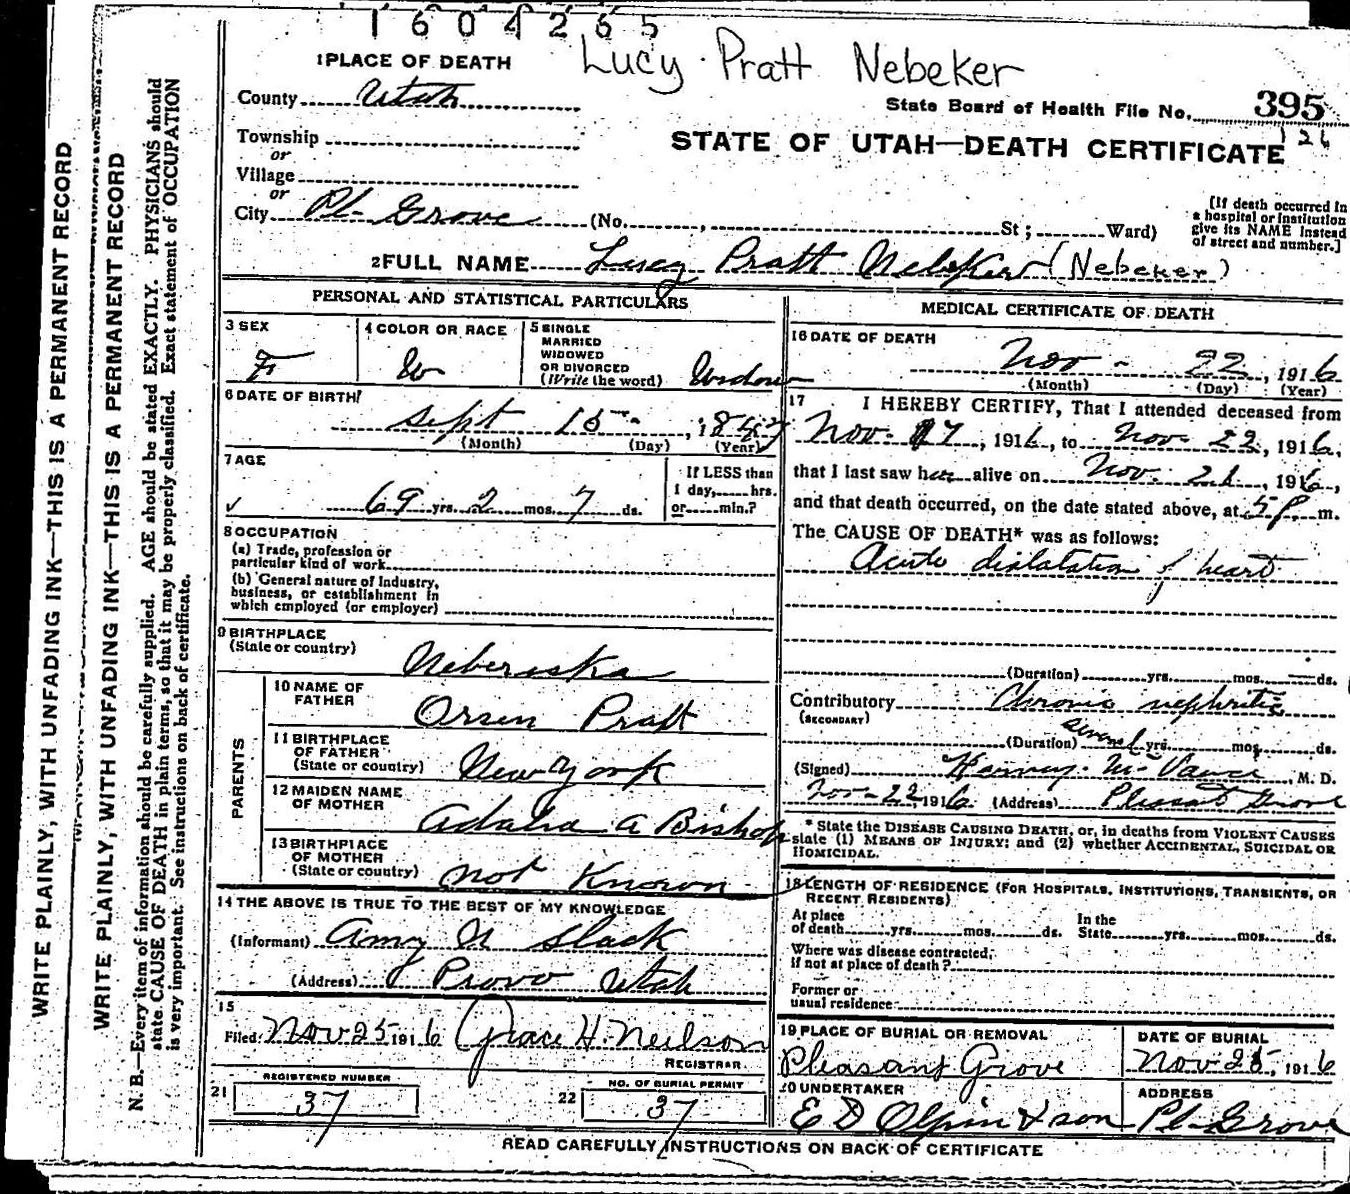 1604265
Lucy Pratt Nebeker
1 PLACE OF DEATH
County Utah
State Board of Health File No. 395
126
Township
or
Village
or
STATE OF UTAH—DEATH CERTIFICATE
City Pl- Grove (No. , St ; Ward)
[If death occurred in
a hospital or institution
give its NAME instead
of street and number.]
2 FULL NAME Lucy Pratt Nebeker (Nebeker)
PERSONAL AND STATISTICAL PARTICULARS
3 SEX
F
4 COLOR OR RACE
W
5 SINGLE
MARRIED
WIDOWED
OR DIVORCED
(Write the word) Widow
6 DATE OF BIRTH
Sept 15 - , 1847
(Month) (Day) (Year)
7 AGE
✓ 69 yrs. 2 mos. 7 ds.
If LESS than
1 day, hrs.
or min.?
8 OCCUPATION
(a) Trade, profession or
particular kind of work
(b) General nature of Industry,
business, or establishment in
which employed (or employer)
9 BIRTHPLACE
(State or country) Neberaska
PARENTS
10 NAME OF
FATHER Orsen Pratt
11 BIRTHPLACE
OF FATHER
(State or country) New York
12 MAIDEN NAME
OF MOTHER Adalia A Bishop
13 BIRTHPLACE
OF MOTHER
(State or country) not Known
14 THE ABOVE IS TRUE TO THE BEST OF MY KNOWLEDGE
(Informant) Amy N Slack
(Address) Provo Utah
15
Filed: Nov 25 1916 Grace H. Neilson
REGISTRAR
21 REGISTERED NUMBER
37
22 NO. OF BURIAL PERMIT
37
MEDICAL CERTIFICATE OF DEATH
16 DATE OF DEATH
Nov - 22, 1916
(Month) (Day) (Year)
17 I HEREBY CERTIFY, That I attended deceased from
Nov. 17, 1916, to Nov- 22, 1916,
that I last saw her alive on Nov. 21, 1916,
and that death occurred, on the date stated above, at 5 P. m.
The CAUSE OF DEATH* was as follows:
Acute dialatation of heart
(Duration) yrs. mos. ds.
Contributory Chronic nephritis
(SECONDARY)
(Duration) several yrs. mos. ds.
(Signed) M. D.
Nov-22 1916 (Address) Pleasant Grove
* State the DISEASE CAUSING DEATH, or, in deaths from VIOLENT CAUSES
state (1) MEANS OF INJURY; and (2) whether ACCIDENTAL, SUICIDAL OR
HOMICIDAL.
18 LENGTH OF RESIDENCE (FOR HOSPITALS, INSTITUTIONS, TRANSIENTS, OR
RECENT RESIDENTS)
At place
of death yrs. mos. ds.
In the
State yrs. mos. ds.
Where was disease contracted,
if not at place of death?
Former or
usual residence
19 PLACE OF BURIAL OR REMOVAL
Pleasant Grove
DATE OF BURIAL
Nov 25, 1916
20 UNDERTAKER
E D Olpin & son
ADDRESS
Pl- Grove
READ CAREFULLY INSTRUCTIONS ON BACK OF CERTIFICATE
WRITE PLAINLY, WITH UNFADING INK—THIS IS A PERMANENT RECORD
WRITE PLAINLY, WITH UNFADING INK—THIS IS A PERMANENT RECORD
N. B.—Every item of information should be carefully supplied. AGE should be stated EXACTLY. PHYSICIANS should
state CAUSE OF DEATH in plain terms, so that it may be properly classified. Exact statement of OCCUPATION
is very important. See instructions on back of certificate.